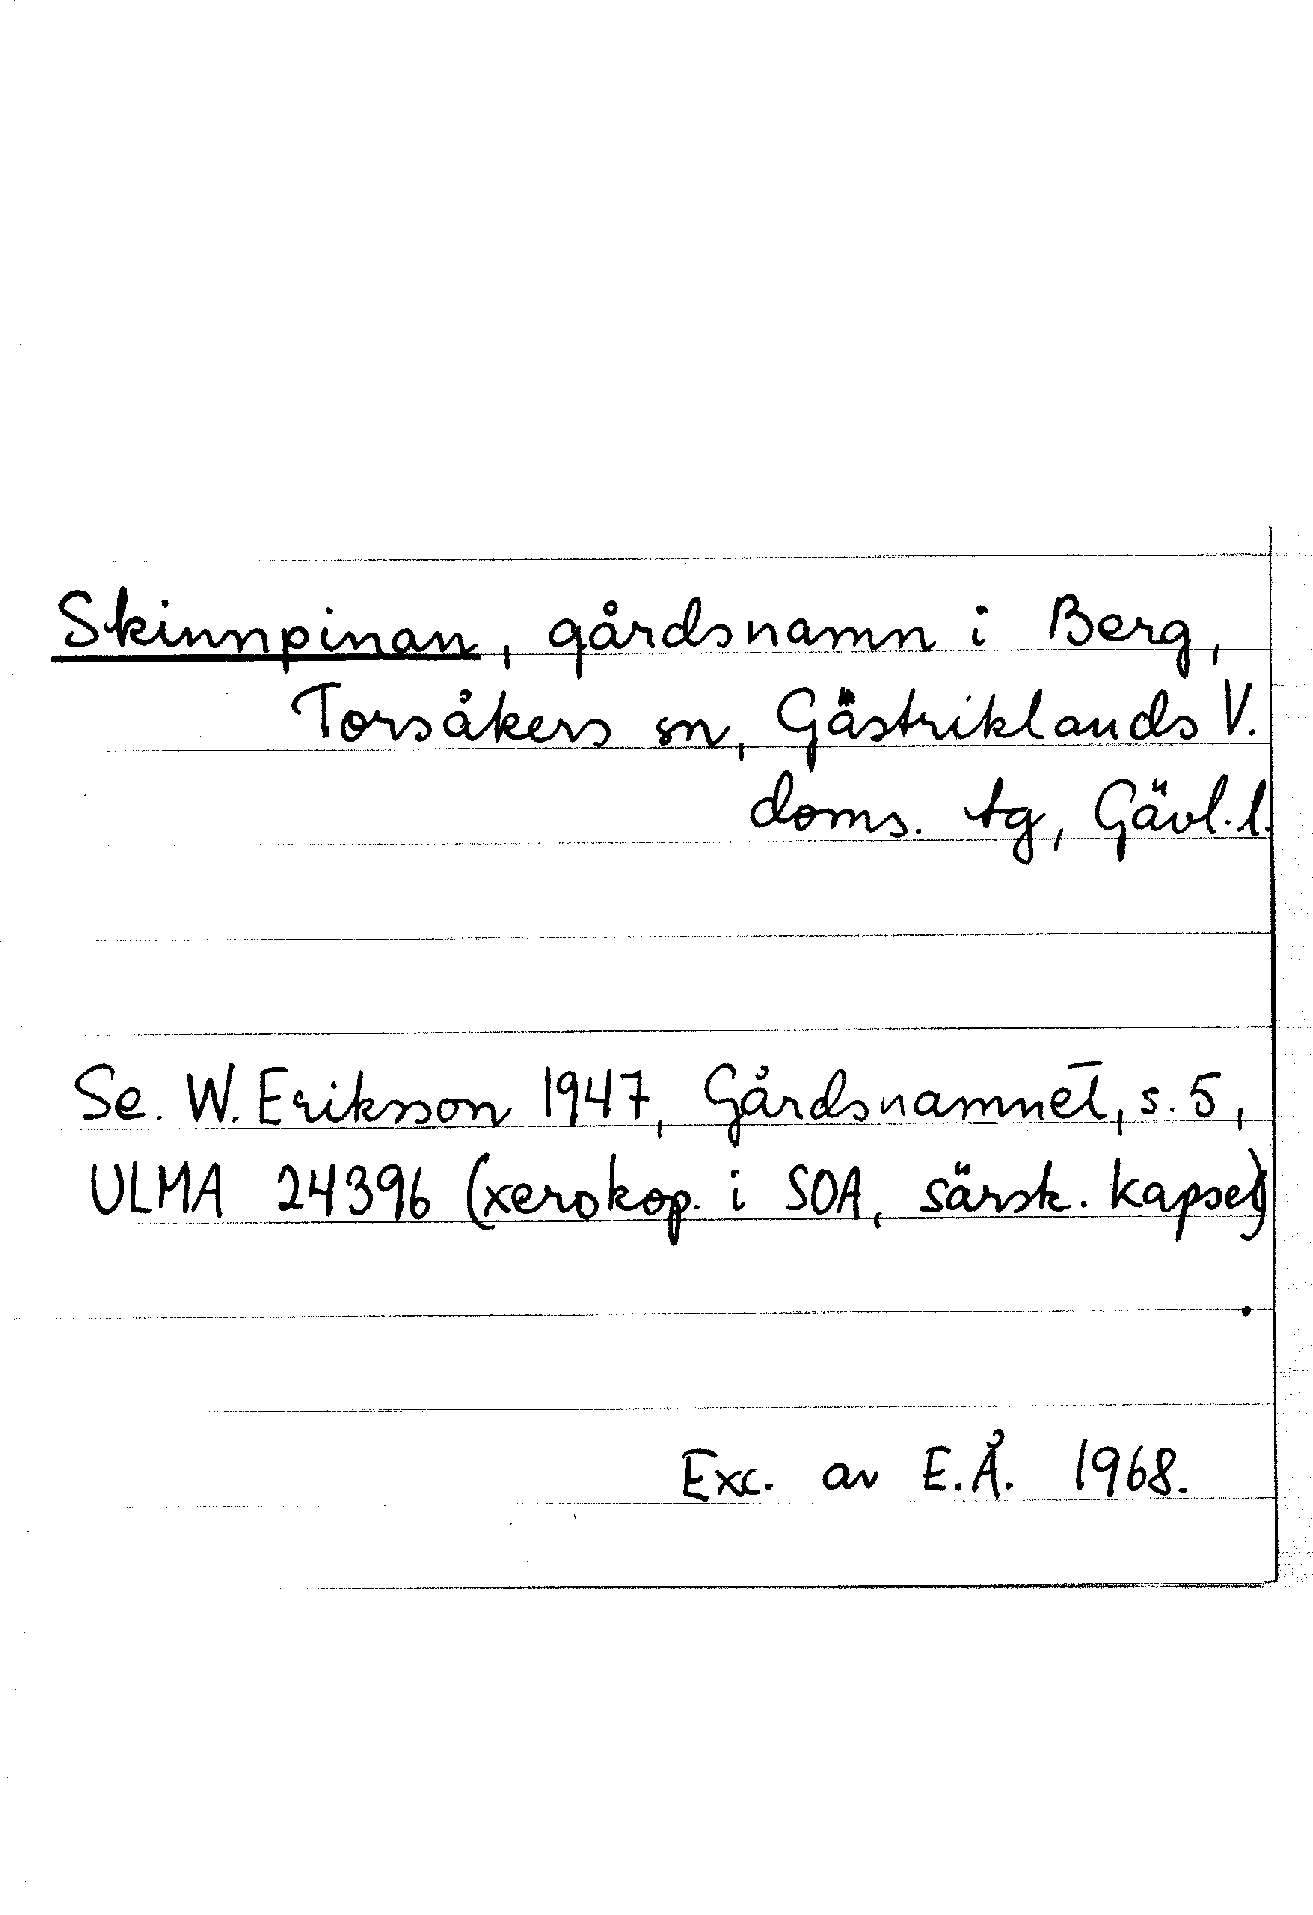 Skinnpinan, gårdsnamn i Berg,
Torsåkers sn, Gästriklands V.
doms. tg, Gävl. l.
Se. W. Eriksson 1947, Gårdsnamnet, s. 5,
ULMA 24396 (xerokop. i SOA, särsk. kapsel)
Exc. av E.Å. 1968.